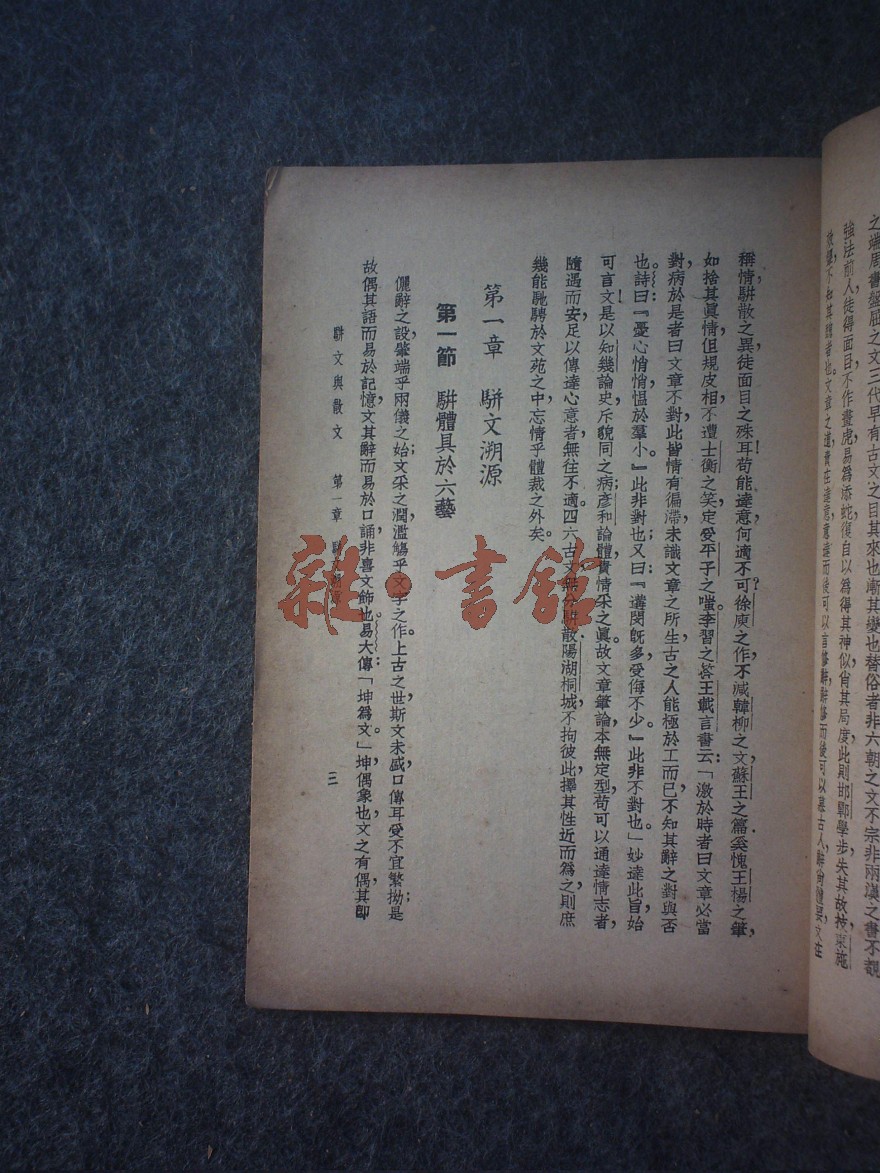 之端周書極屈之文三代早有古文之目其來也漸其變也替俗者非六朝之文不宗非兩漢之書不觀
強法前人徒得面目不作畫虎易爲添蛇復自以爲得其神似肖其局度此則邯鄲學步失其故技東施
不知其醜者也。文章之道,貴在達意,意達而後可以言修辭,辭修而後可以慕古人,辭尙體要,文在
稱情,駢散之異,徒面目之殊耳!苟能達意,何適不可?徐庾之作,不減韓柳之文,蘇王之篇,奚愧王楊之筆,
如捨其眞情,但規皮相,不遭士衡之笑,定受平子之嗤。李習之答王載言書云:「激於時者曰,文章必當
對,病於是者曰,文章不對,此皆情有徧滯,未識文章之所生,古之人能極於工而已,不知其辭之對與否
也。詩曰:『憂心悄悄,慍於羣小。』此非對也;又曰:『遘閔旣多,受侮不少。』此非不對也。」妙達此旨,始
可言文!是以知幾論史,斥貌同之病;彥和論體,貴情采之眞。故文章肇論,本無定型,苟可以通達情志者,
隨遇而安,足以傳達心意者,無往不適。四六古文,無分駢散,陽湖桐城,不拘彼此,擇其性近而爲之,則庶
幾能馳騁於文苑之中,忘情乎體裁之外矣。
第一章 駢文溯源
第一節 駢體具於六藝
儷辭之設,肇端乎兩儀之始;文采之潤,濫觴乎文字之作。上古之世,斯文未盛,口傳耳受,不宜繁拗;是
故偶其語而易於記憶,文其辭而易於口誦,非喜文飾也。易大傳:「坤爲文」,坤,偶象也,文之有偶,其卽
駢文與散文 第一章
三
雜·書館